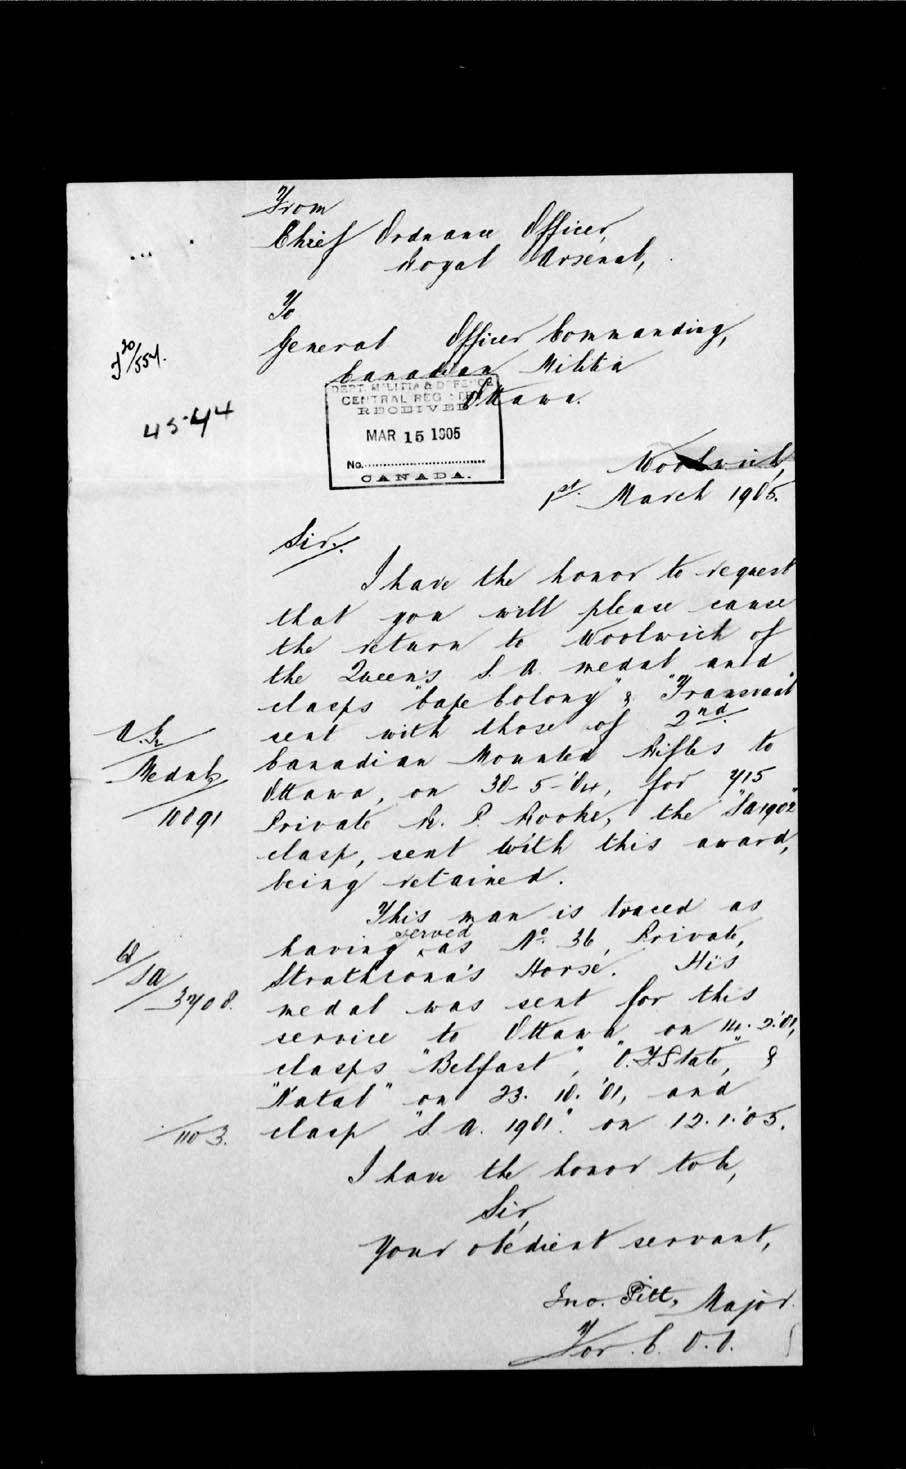 From
Chief Ordnance Officer,
Royal Arsenal,
To
General Officer Commanding,
Canadian Militia
Ottawa.
20/554.
45-44
DEPT. MILITIA & DEFENCE
CENTRAL REG
RECEIVED
MAR 15 1905
No.
CANADA.
Woolwich,
1st. March 1905.
Sir:
I have the honor to request
that you will please cause
the return to Woolwich of
the Queen's S. A. medal and
clasps "Cape Colony" & "Transvaal"
sent with those of 2nd.
Canadian Mounted Rifles to
Ottawa, on 30-5-'04, for 715
Private R. P. Rooke, the "SA1902"
clasp, sent with this award,
being retained.
Medals
10891
This man is traced as
having served as No. 36, Private,
Strathcona's Horse. His
medal was sent for this
service to Ottawa on 14.2.'01,
clasps "Belfast", "O.F.State", &
"Natal" on 23.10.'01, and
clasp "S. A. 1901." on 12.1.'05.
SA
3708.
1103.
I have the honor to be,
Sir,
Your obedient servant,
Jno. Pitt, Major.
For. C. O. O.